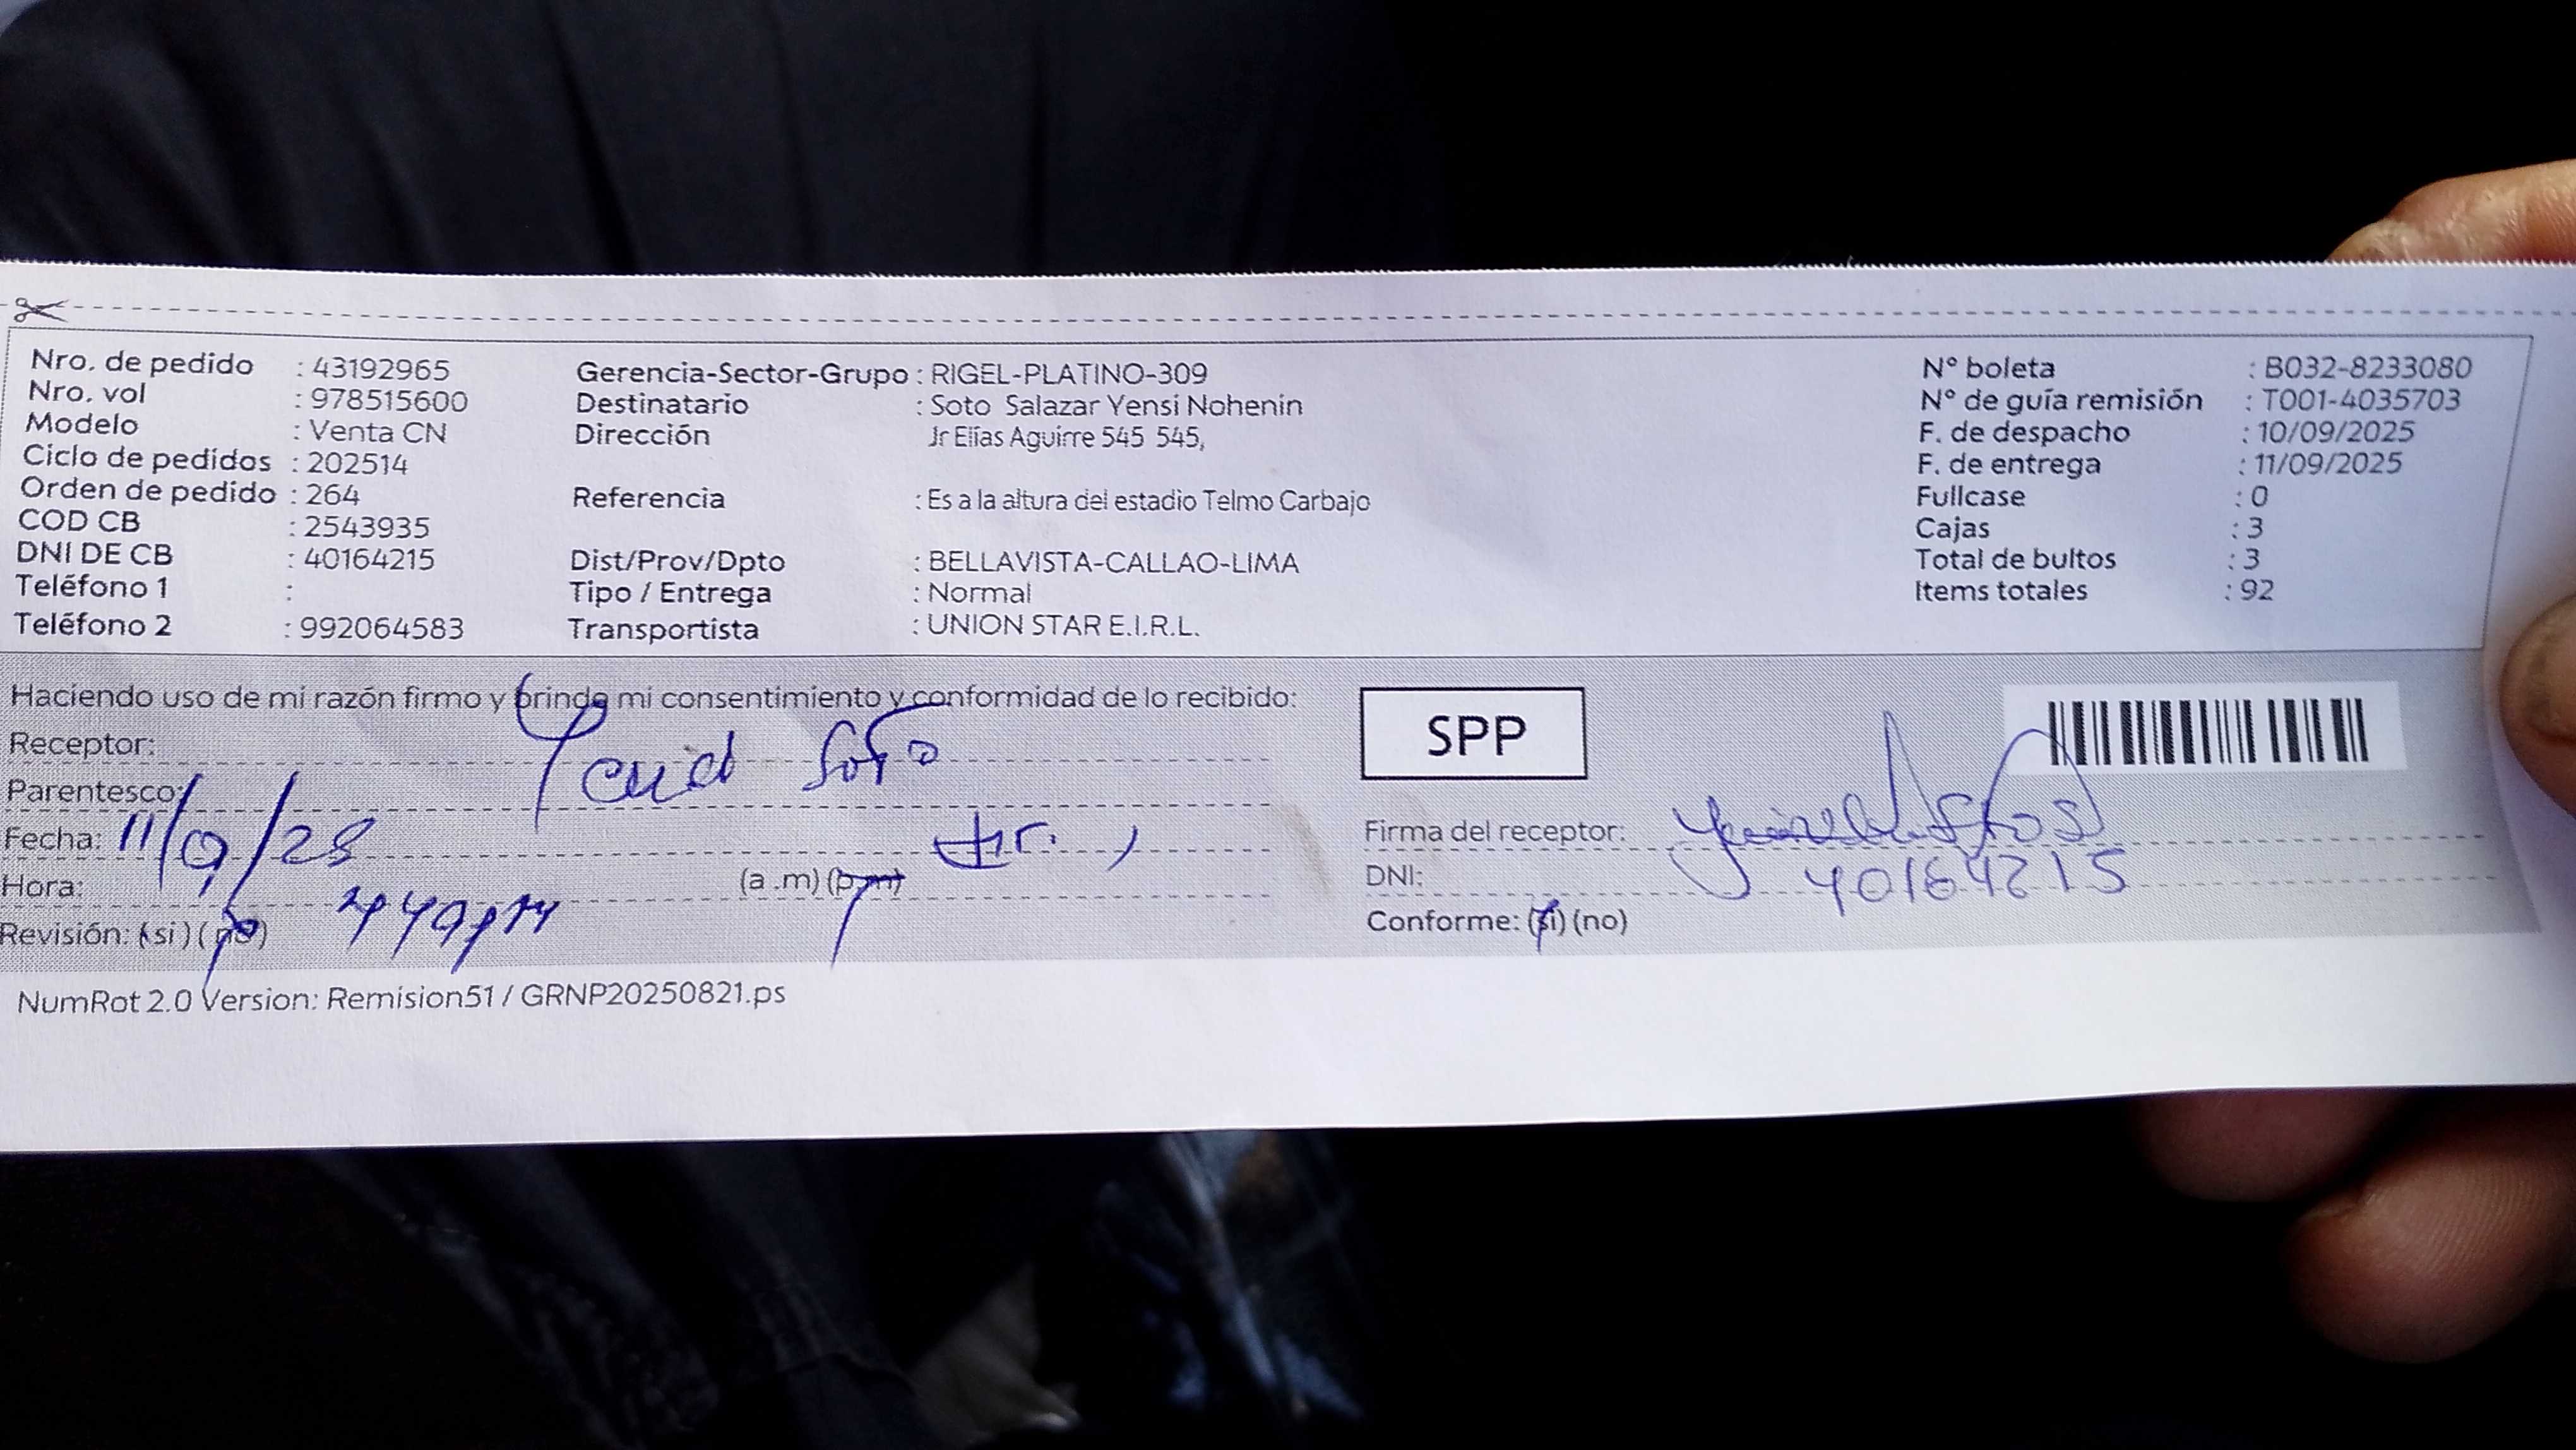 Nro. de pedido : 43192965
Nro. vol : 978515600
Modelo : Venta CN
Ciclo de pedidos : 202514
Orden de pedido : 264
COD CB : 2543935
DNI DE CB : 40164215
Teléfono 1 :
Teléfono 2 : 992064583
Gerencia-Sector-Grupo : RIGEL-PLATINO-309
Destinatario : Soto Salazar Yensi Nohenin
Dirección Jr Elías Aguirre 545 545,
Referencia : Es a la altura del estadio Telmo Carbajo
Dist/Prov/Dpto : BELLAVISTA-CALLAO-LIMA
Tipo / Entrega : Normal
Transportista : UNION STAR E.I.R.L.
N° boleta : B032-8233080
N° de guía remisión : T001-4035703
F. de despacho : 10/09/2025
F. de entrega : 11/09/2025
Fullcase : 0
Cajas : 3
Total de bultos : 3
Items totales : 92
Haciendo uso de mi razón firmo y brindo mi consentimiento y conformidad de lo recibido:
Receptor: Soto
Parentesco:
Fecha: 11/9/
Hora: (a .m) (p.m)
Revisión: (si) (no)
SPP
Firma del receptor:
DNI: 40164215
Conforme: (si) (no)
NumRot 2.0 Version: Remision51 / GRNP20250821.ps